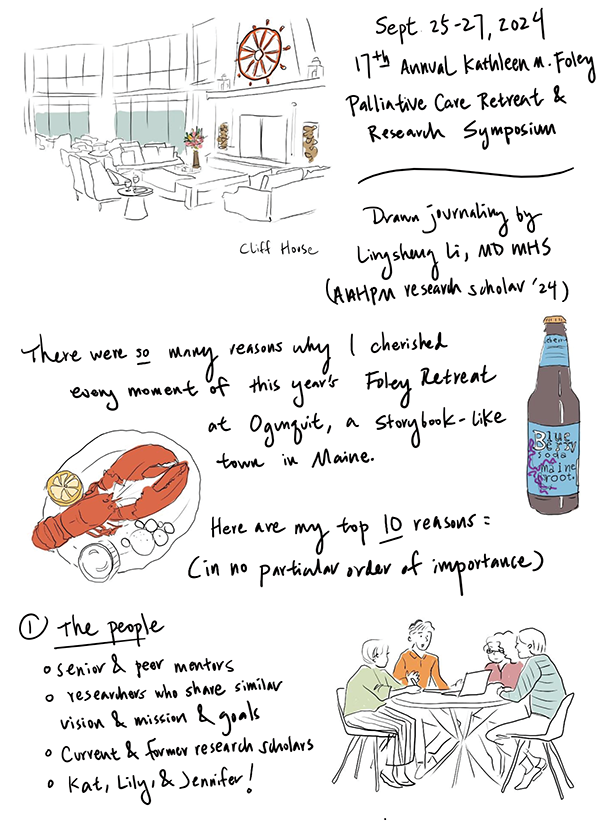 Sept. 25-27, 2024
17th Annual Kathleen M. Foley
Palliative Care Retreat &
Research Symposium
Cliff House
Drawn journaling by
Lingsheng Li, MD MHS
(AAHPM research scholar '24)
There were so many reasons why I cherished
every moment of this year's Foley Retreat
at Ogunquit, a storybook-like
town in Maine.
Blue
Berry
soda
maine
root.
Here are my top 10 reasons:
(in no particular order of importance)
① The people
o senior & peer mentors
o researchers who share similar
vision & mission & goals
o Current & former research scholars
o Kat, Lily, & Jennifer!